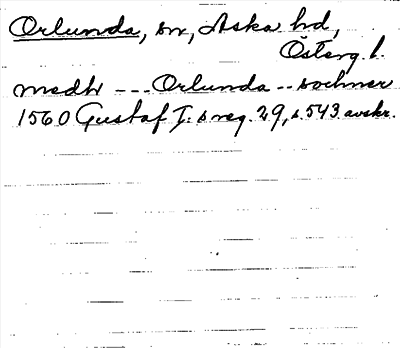 Orlunda, sn, Aska hd,
Österg. l.
medh --- Orlunda -- sochner
1560 Gustaf I:s reg. 29, s. 543 avskr.